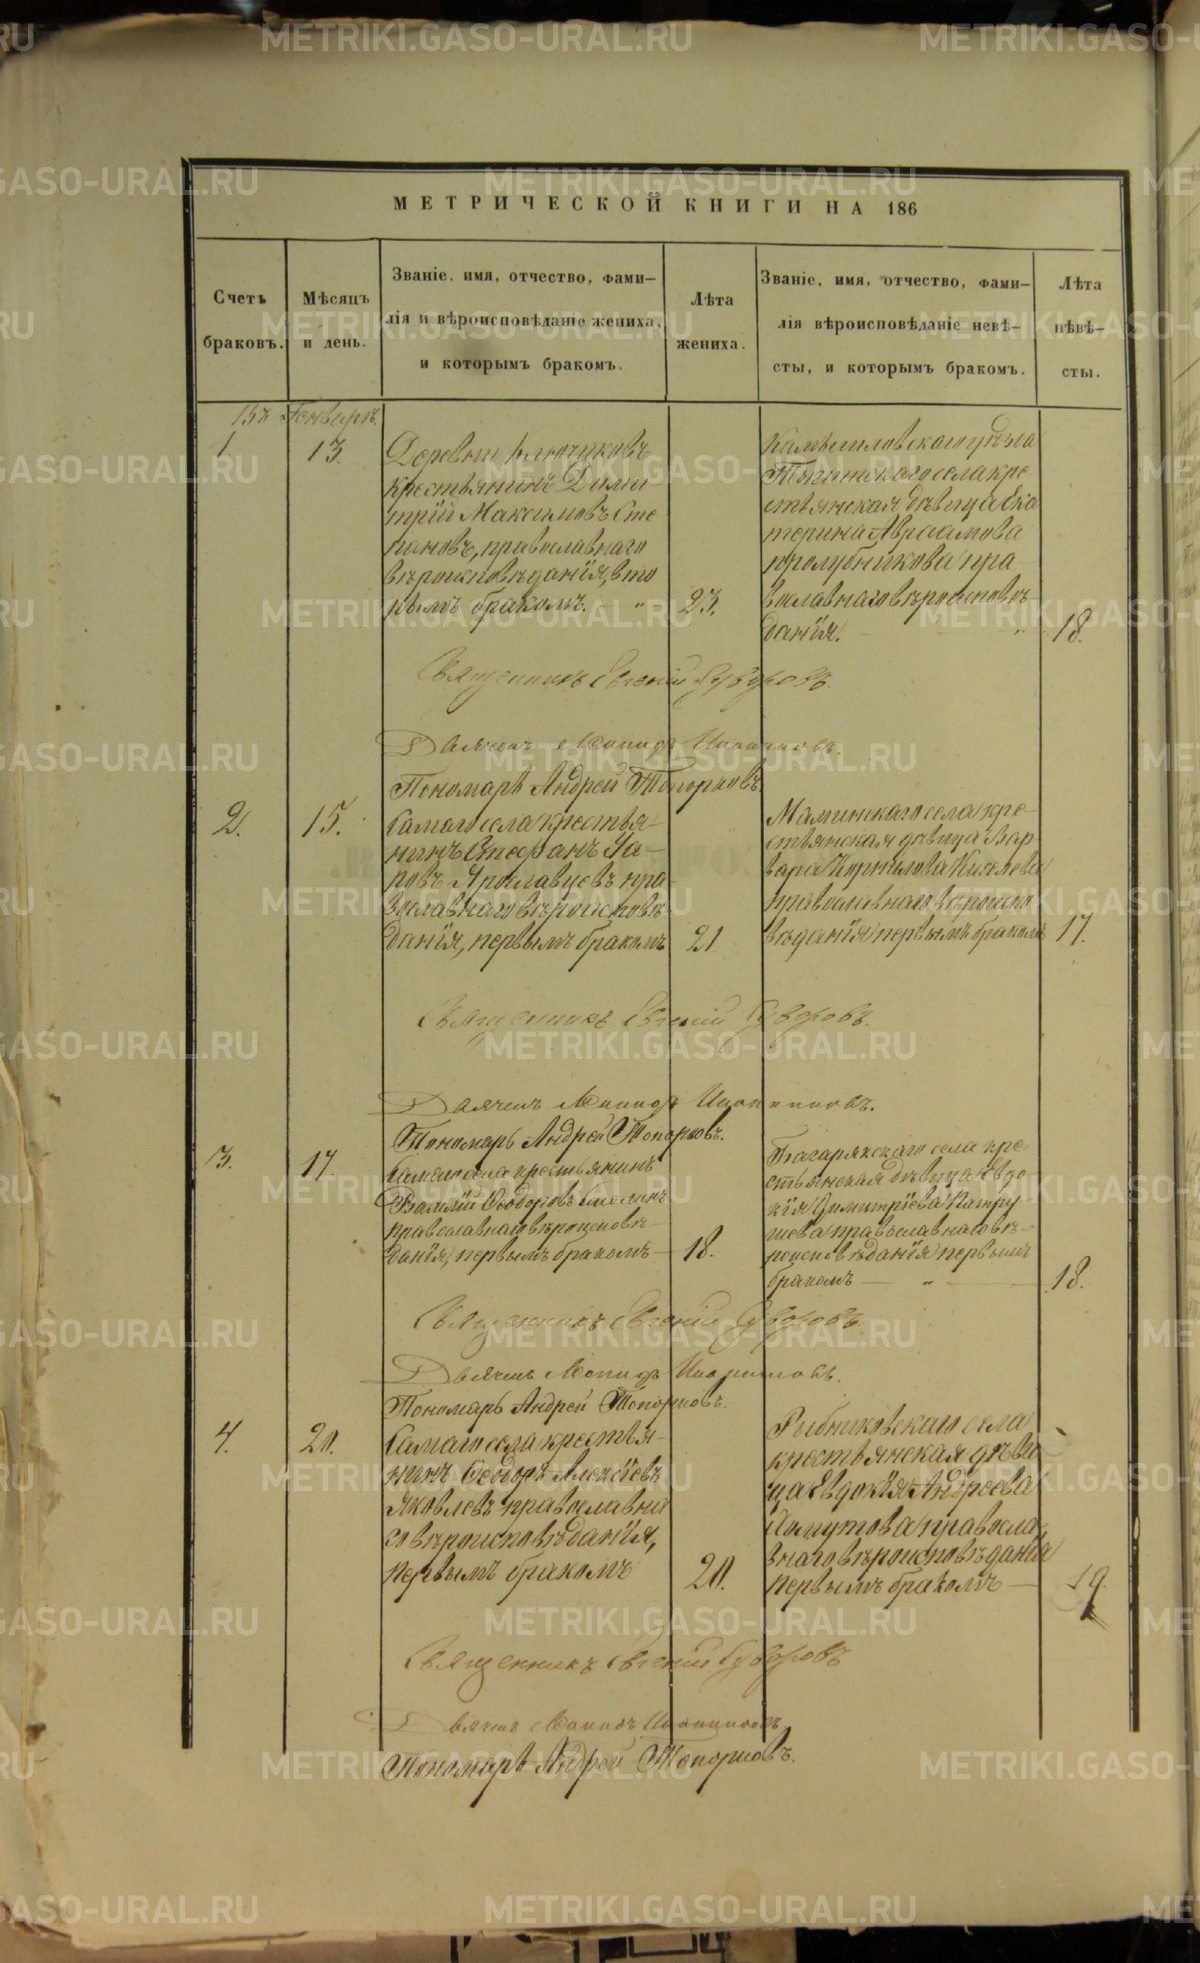 МЕТРИЧЕСКОЙ КНИГИ НА 186
Счетъ браковъ.
Мѣсяцъ и день.
Званіе, имя, отчество, фами-
лія и вѣроисповѣданіе жениха,
и которымъ бракомъ.
Лѣта
жениха.
Званіе, имя, отчество, фами-
лія вѣроисповѣданіе невѣ-
сты, и которымъ бракомъ.
Лѣта
нѣвѣ-
сты.
Генварь
1
13.
Деревни Ключиковъ
крестьянинъ Дими
трій Максимовъ Сте
пановъ, православнаго
вѣроисповѣданія, вто
рымъ бракомъ. "
23.
Камышловскаго уѣзда
крестьянская дѣвица Ека
терина Авраамова
Пролубникова пра
вославнаго вѣроисповѣ-
данія. "
18.
Священникъ Евгеній Суворовъ.
Дьячекъ
Пономарь Андрей Топорковъ.
2.
15.
Самаго села крестья-
нинъ Стефанъ
Ярославцевъ пра-
вославнаго вѣроисповѣ
данія, первымъ бракомъ
21
Маминскаго села кре-
стьянская дѣвица Вар
вара Корнилова Киселева
православнаго вѣроиспо
вѣданія первымъ бракомъ
17.
Священникъ Евгеній Суворовъ.
Дьячекъ
Пономарь Андрей Топорковъ.
3.
17.
Самаго села крестьянинъ
Василій Ѳеодоровъ
православнаго вѣроисповѣ-
данія, первымъ бракомъ —
18.
Багарякскаго села кре
стьянская дѣвица Евдо-
кія Димитріева Патру
шева православнаго вѣ-
роисповѣданія первымъ
бракомъ — " —
18.
Священникъ Евгеній Суворовъ.
Дьячекъ
Пономарь Андрей Топорковъ.
4.
20.
Самаго села крестья-
нинъ Ѳеодоръ Алексѣевъ
Яковлевъ православна
го вѣроисповѣданія,
первымъ бракомъ
20.
Рыбниковскаго села
крестьянская дѣви
ца Евдокія Андреева
православ
наго вѣроисповѣданія
первымъ бракомъ —
19.
Священникъ Евгеній Суворовъ
Дьячекъ
Пономарь Андрей Топорковъ.
METRIKI.GASO-URAL.RU